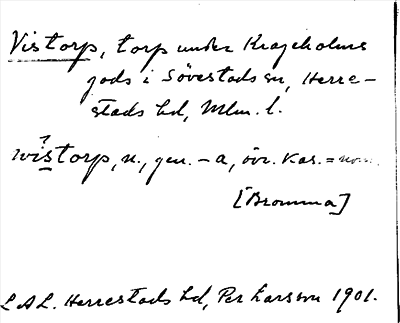 Vistorp, torp under Krageholms
gods i Sövestads sn, Herre-
stads hd, Mlm. l.
wistorp, n., gen. -a, övr. kas. = nom.
[Bromma]
LAL. Herrestads hd, Per Larsson 1901.